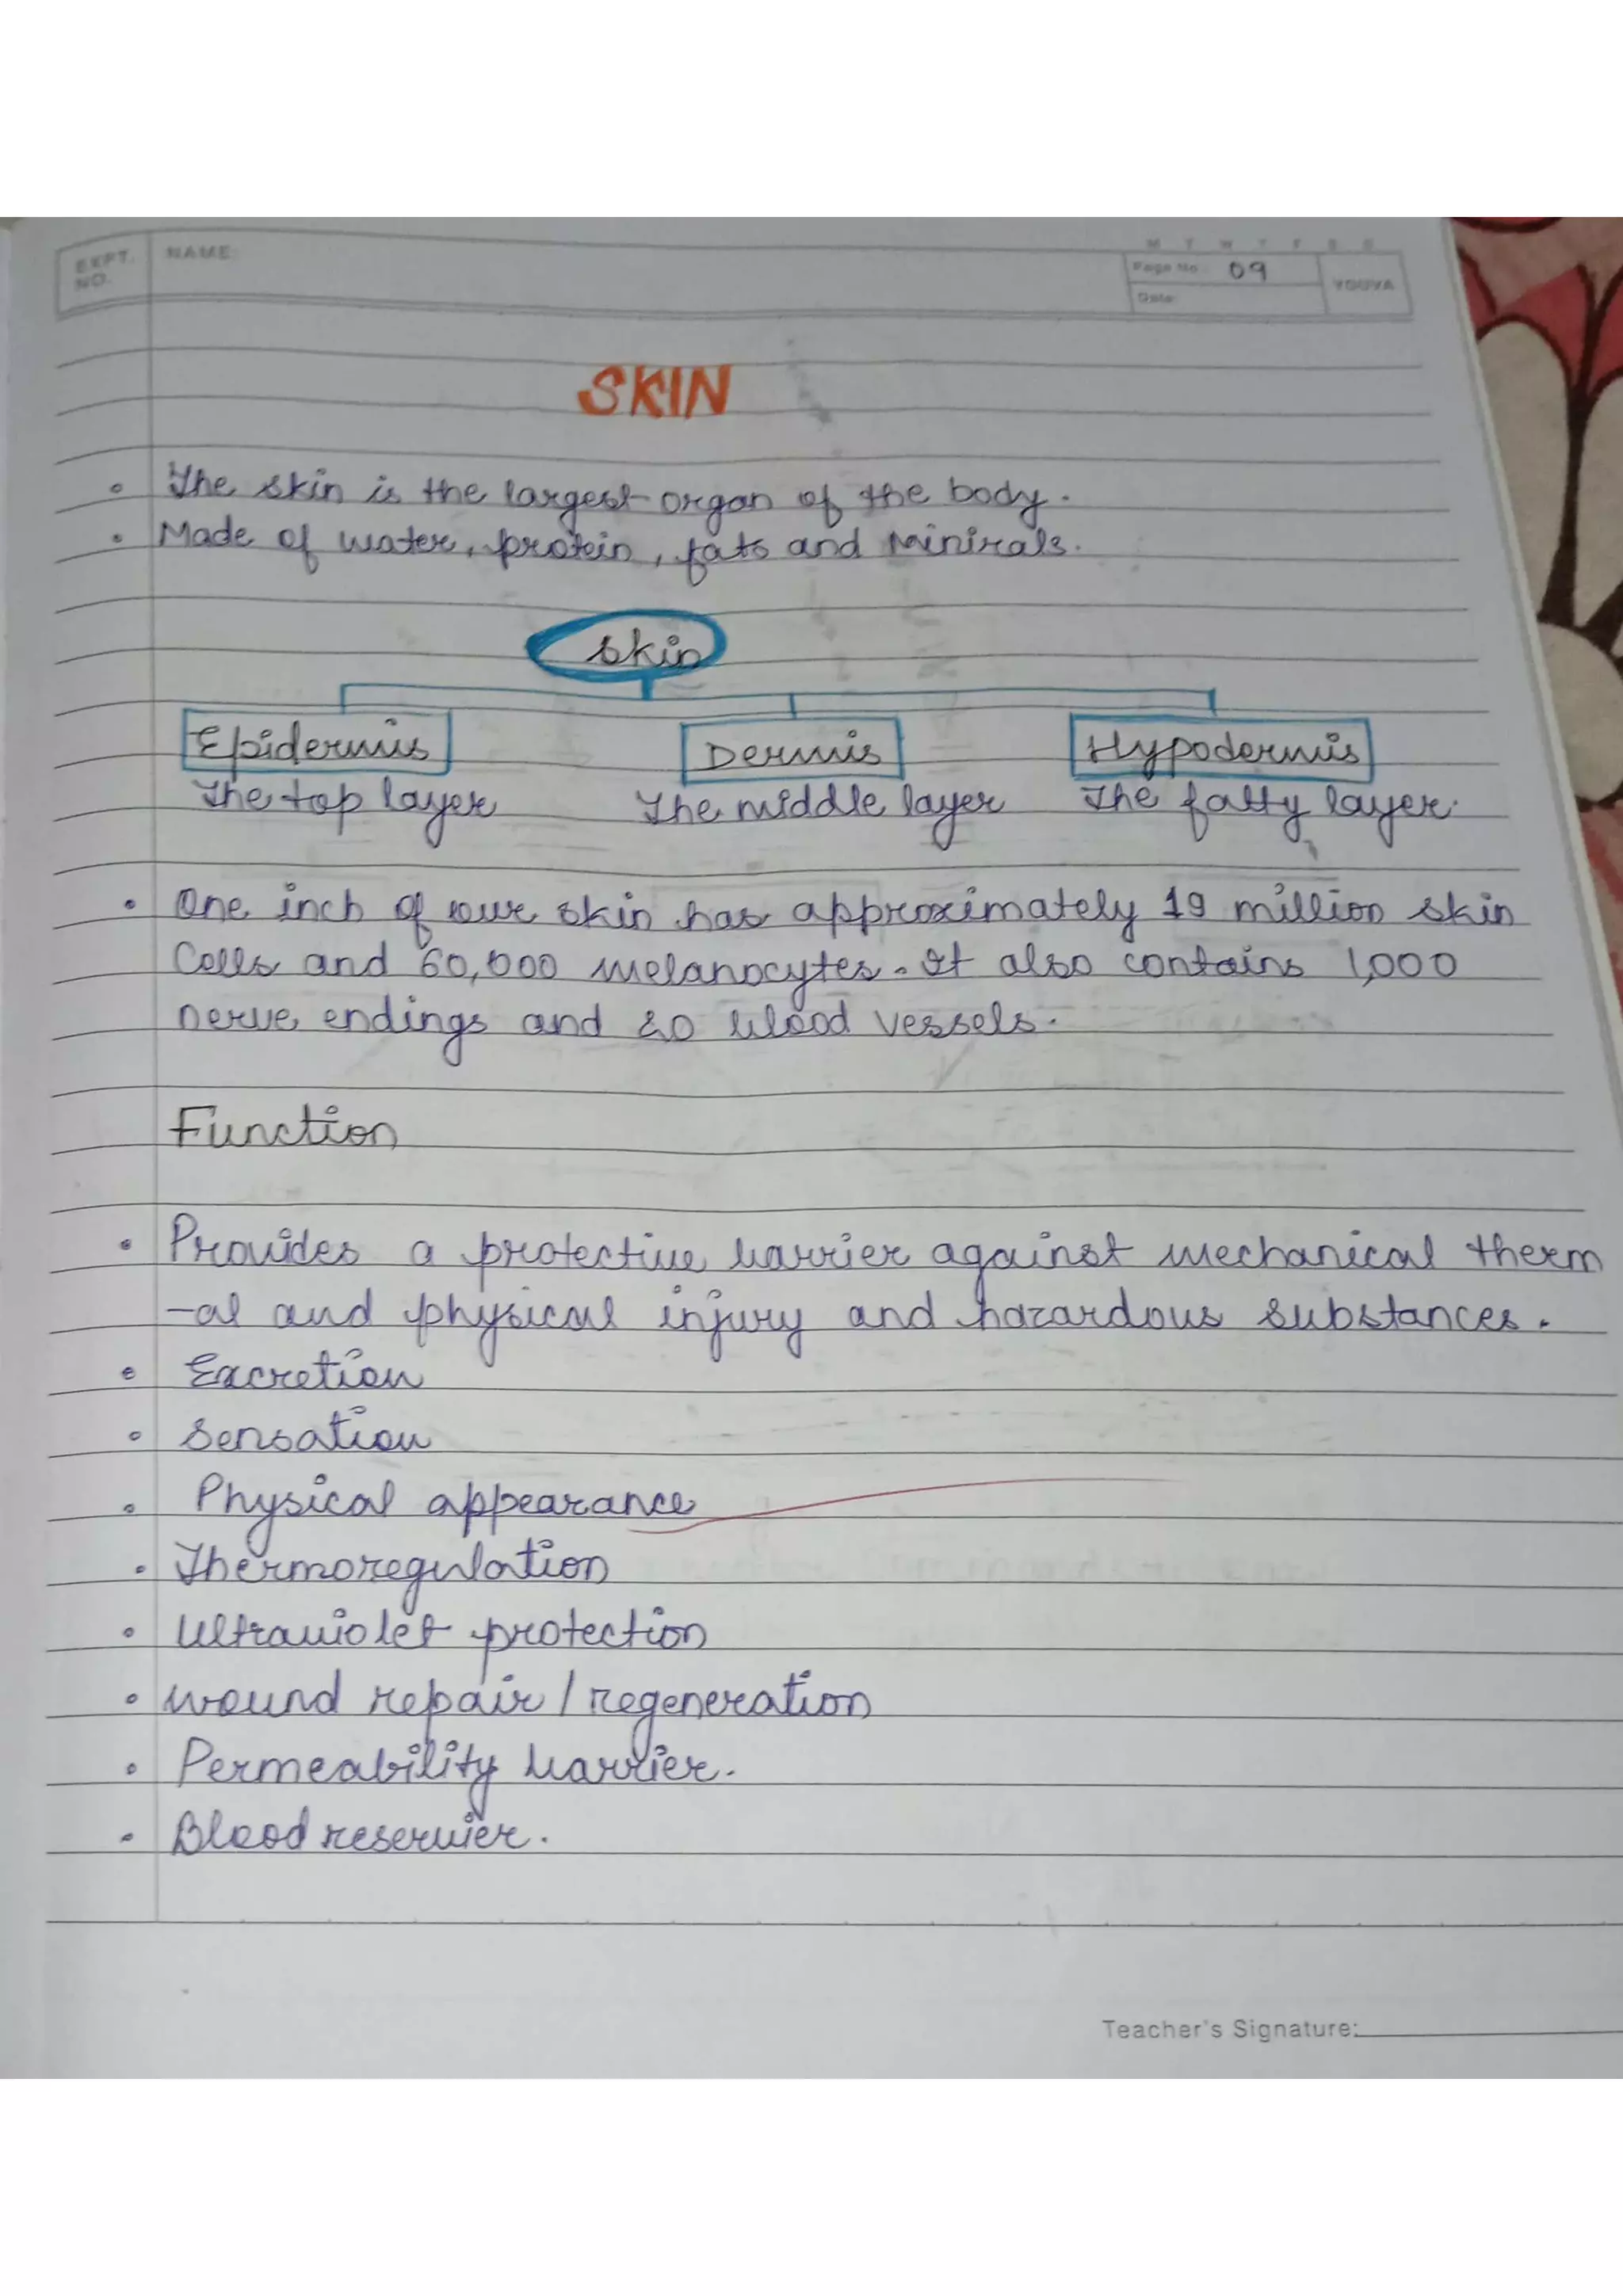 EXPT. NO.
NAME:
M T W T F S S
Page No. 09
Date:
YOUVA
SKIN
• The skin is the largest organ of the body.
• Made of water, protein, fats and Minirals.
Skin
Epidermis Dermis Hypodermis
The top layer The middle layer The fatty layer.
• One inch of our skin has approximately 19 million skin
Cells and 60,000 melanocytes. It also contains 1,000
nerve endings and 20 blood vessels.
Function
• Provides a protective barrier against mechanical therm
-al and physical injury and hazardous substances.
• Excretion
• Sensation
• Physical appearance
• Thermoregulation
• Ultraviolet protection
• wound repair / regeneration
• Permeability barrier.
• Blood reservier.
Teacher's Signature: